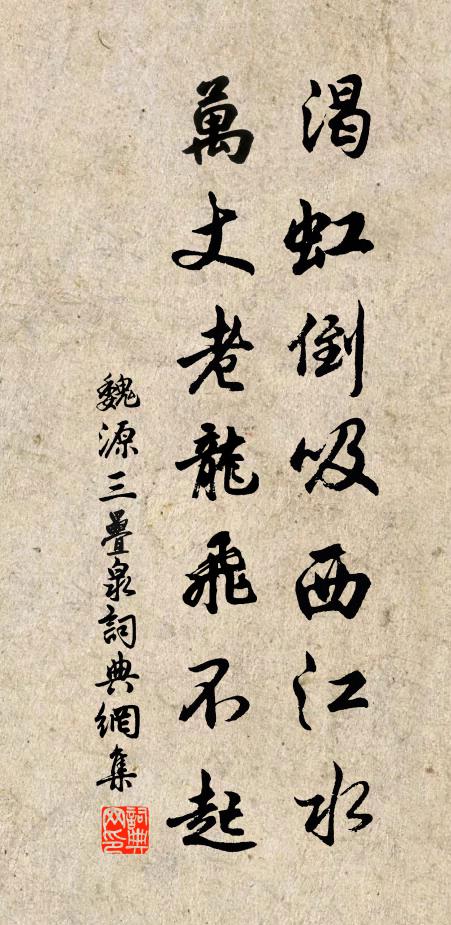 渴虹倒吸西江水
萬丈老龍飛不起
魏源三疊泉詞典網集
詞典网印